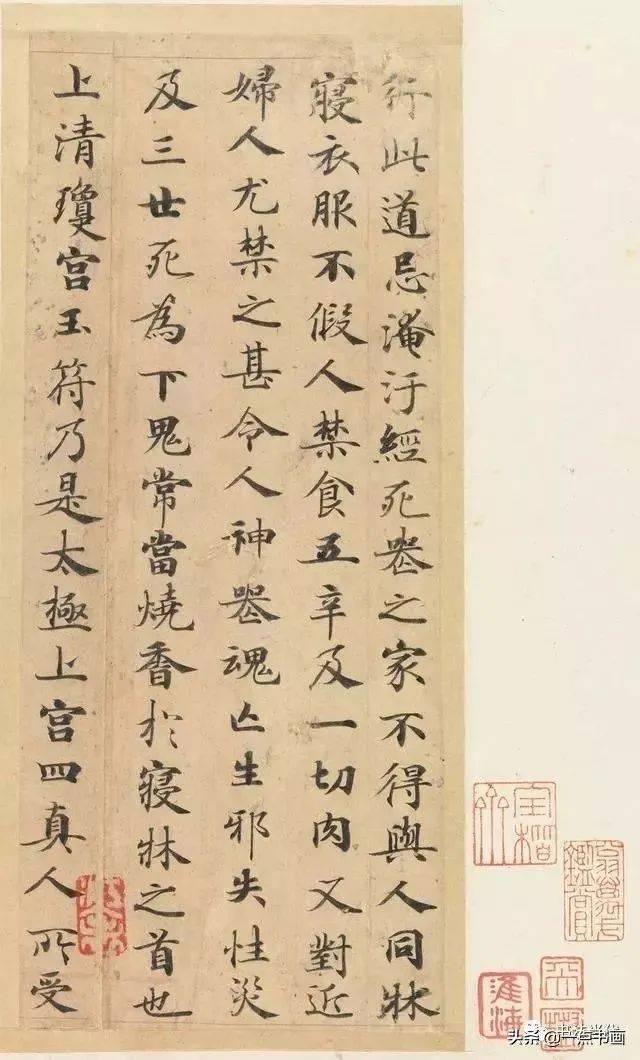 行此道忌淹汙經死喪之家不得與人同牀
寢衣服不假人禁食五辛及一切肉又對近
婦人尤禁之甚令人神喪魂亡生邪失性災
及三世死為下鬼常當燒香於寢牀之首也
上清瓊宮玉符乃是太極上宮四真人所受
头条 @一点书画